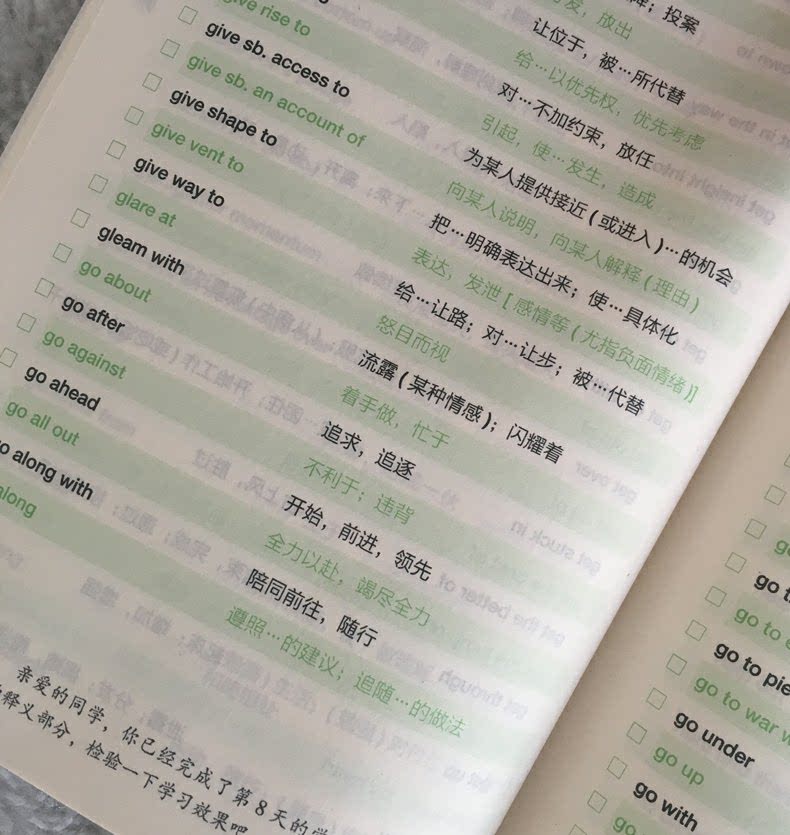 ；投案
发，放出
让位于，被…所代替
给…以优先权，优先考虑
对…不加约束，放任
give rise to 引起，使…发生，造成
give sb. access to 为某人提供接近(或进入)…的机会
give sb. an account of 向某人说明，向某人解释(理由)
give shape to 把…明确表达出来；使…具体化
give vent to 表达，发泄[感情等(尤指负面情绪)]
give way to 给…让路；对…让步；被…代替
glare at 怒目而视
gleam with 流露(某种情感)；闪耀着
go about 着手做，忙于
go after 追求，追逐
go against 不利于；违背
go ahead 开始，前进，领先
go all out 全力以赴，竭尽全力
go along with 陪同前往，随行
along 遵照…的建议；追随…的做法
亲爱的同学，你已经完成了第8天的学
释义部分，检验一下学习效果吧
go to
go to pie
go to war w
go under
go up
go with